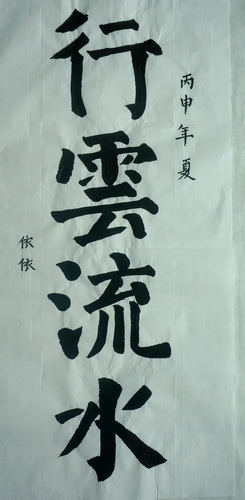 丙申年夏
行雲流水
依依